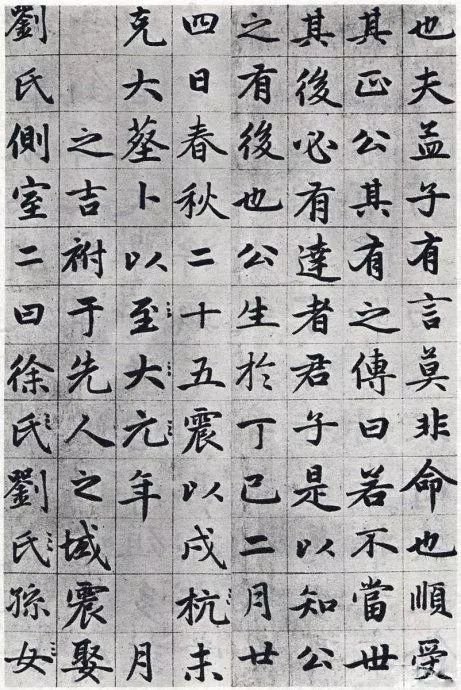 也夫孟子有言莫非命也順受
其正公其有之傳曰若不當世
其後必有達者君子是以知公
之有後也公生於丁巳二月廿
四日春秋二十五震以戍杭未
克大塟卜以至大元年　月
之吉祔于先人之城震娶
劉氏側室二曰徐氏劉氏孫女